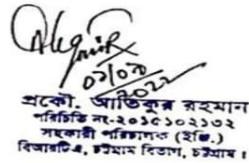 ০১/০৩/২০২২
প্রকৌ. আতিকুর রহমান
পরিচিতি নং-২০১৫১০২১৩২
সহকারী পরিচালক (ইঞ্জি.)
বিআরটিএ, চট্টগ্রাম বিভাগ, চট্টগ্রাম।